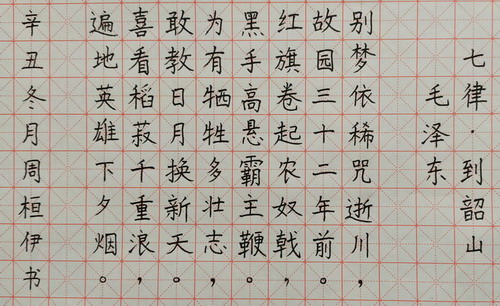 七律·到韶山
毛泽东
别梦依稀咒逝川，
故园三十二年前。
红旗卷起农奴戟，
黑手高悬霸主鞭。
为有牺牲多壮志，
敢教日月换新天。
喜看稻菽千重浪，
遍地英雄下夕烟。
辛丑冬月周桓伊书